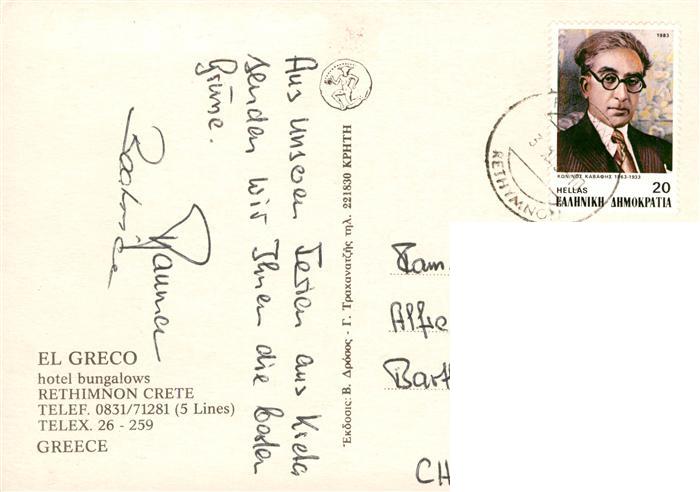 Aus unseren Ferien aus Kreta
senden wir Ihnen die besten
Grüsse.
EL GRECO
hotel bungalows
RETHIMNON CRETE
TELEF. 0831/71281 (5 Lines)
TELEX. 26 - 259
GREECE
Έκδοσις: Β. Δρόσος - Γ. Τραχανατζής τηλ. 221830 ΚΡΗΤΗ
1983
ΚΩΝ/ΝΟΣ ΚΑΒΑΦΗΣ 1863-1933
HELLAS 20
ΕΛΛΗΝΙΚΗ ΔΗΜΟΚΡΑΤΙΑ
RETHYMNON
Fam.
Alfre
Barth
CH